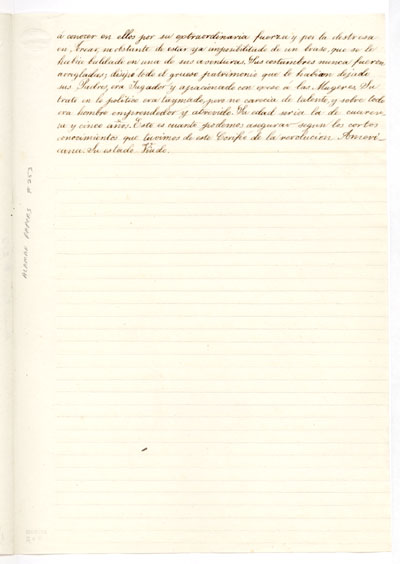 á conocer en ellos por su extraordinaria fuerza y por la destresa
en no obstante de estar ya imposibilitado de un brazo, que se le
habia en una de sus aventuras. Sus costumbres nunca fueron
arregladas; disipó todo el grueso patrimonio que le habian dejado
sus Padres, era Jugador y aficionado con eceso a las Mugeres. Su
trato en lo politico era taymado, pero no carecia de talento, y sobre todo
era hombre emprendedor y atrevido. Su edad seria la de cuaren-
ta y cinco años. Esto es cuanto podemos asegurar segun los cortos
conocimientos que tuvimos de este Corifeo de la revolucion Ameri-
cana. Su estado Viudo.
ALAMAN PAPERS # 253